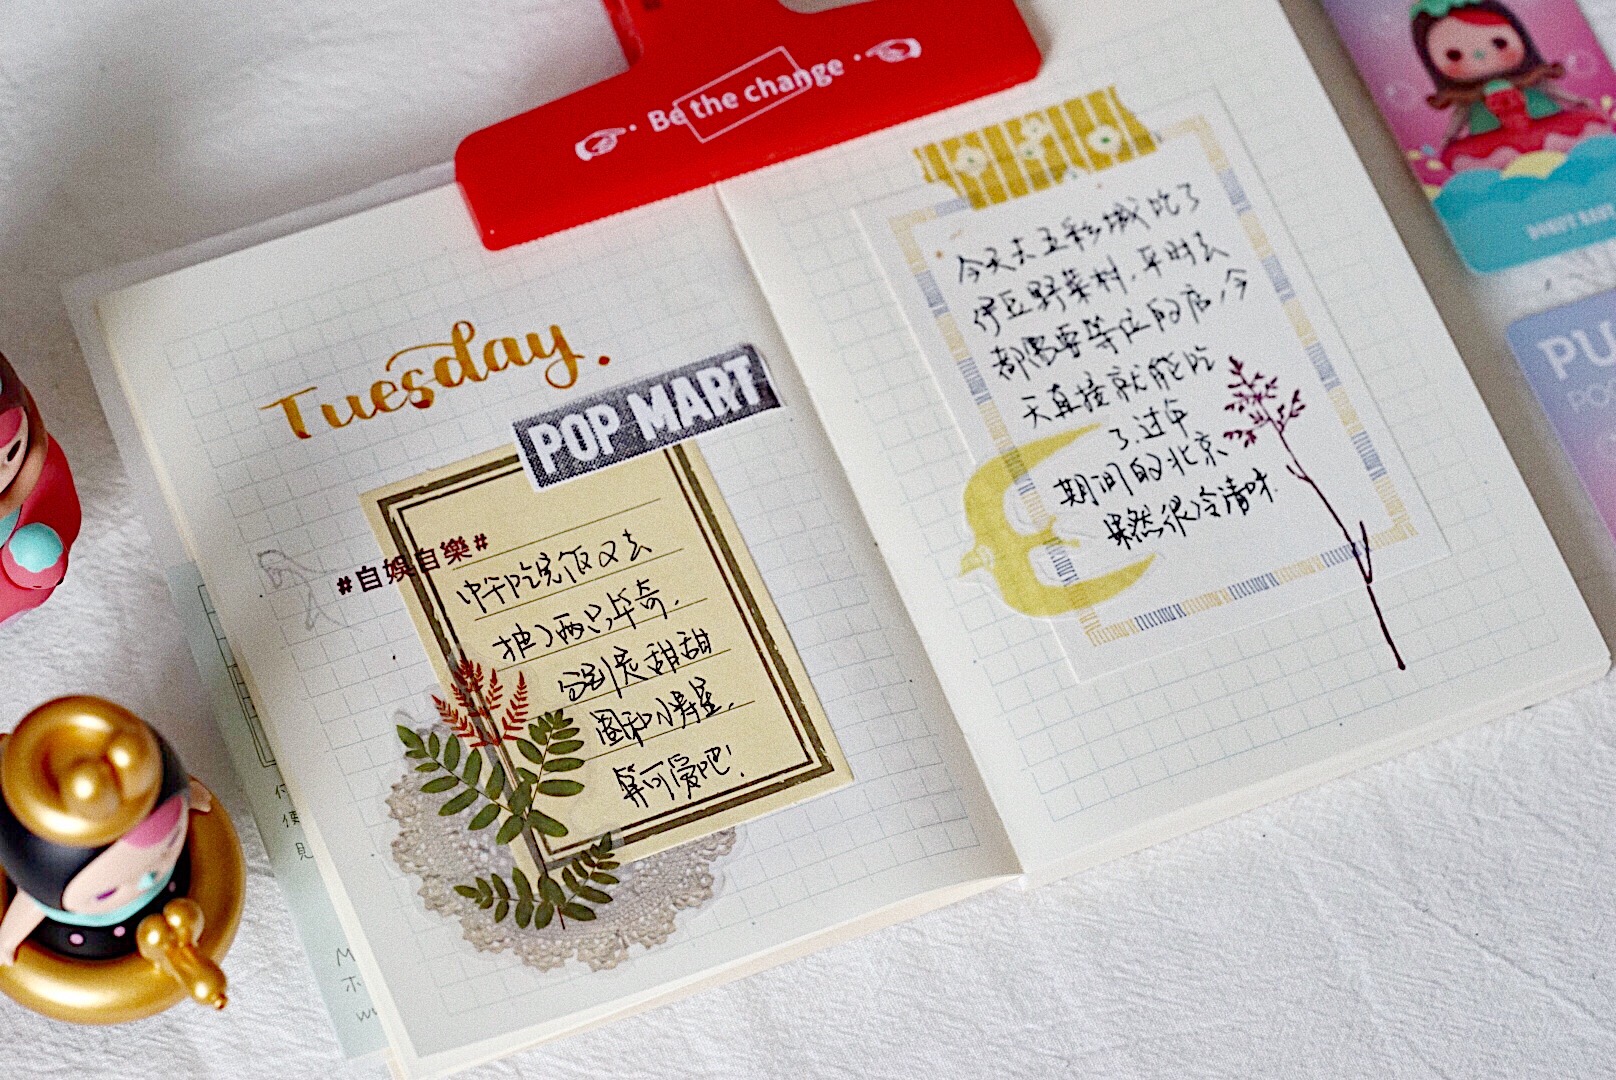 Be the change
Tuesday.
POP MART
#自娱自樂#
中午吃完饭又去
抽了两只毕奇.
分别是甜甜
圈和小寿星.
算可爱吧!
今天去五彩城吃了
伊豆野菜村.平时去
都需要等位的店,今
天直接就能吃
了.过年
期间的北京
果然很冷清呀.
PU